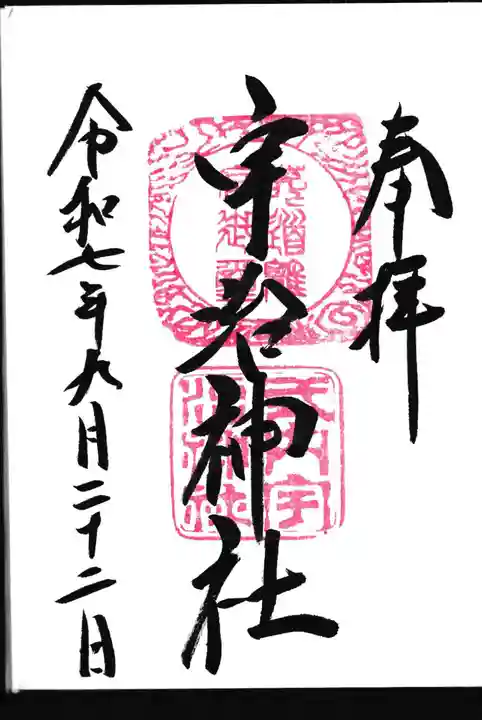 奉拝
宇治神社
令和七年九月二十二日